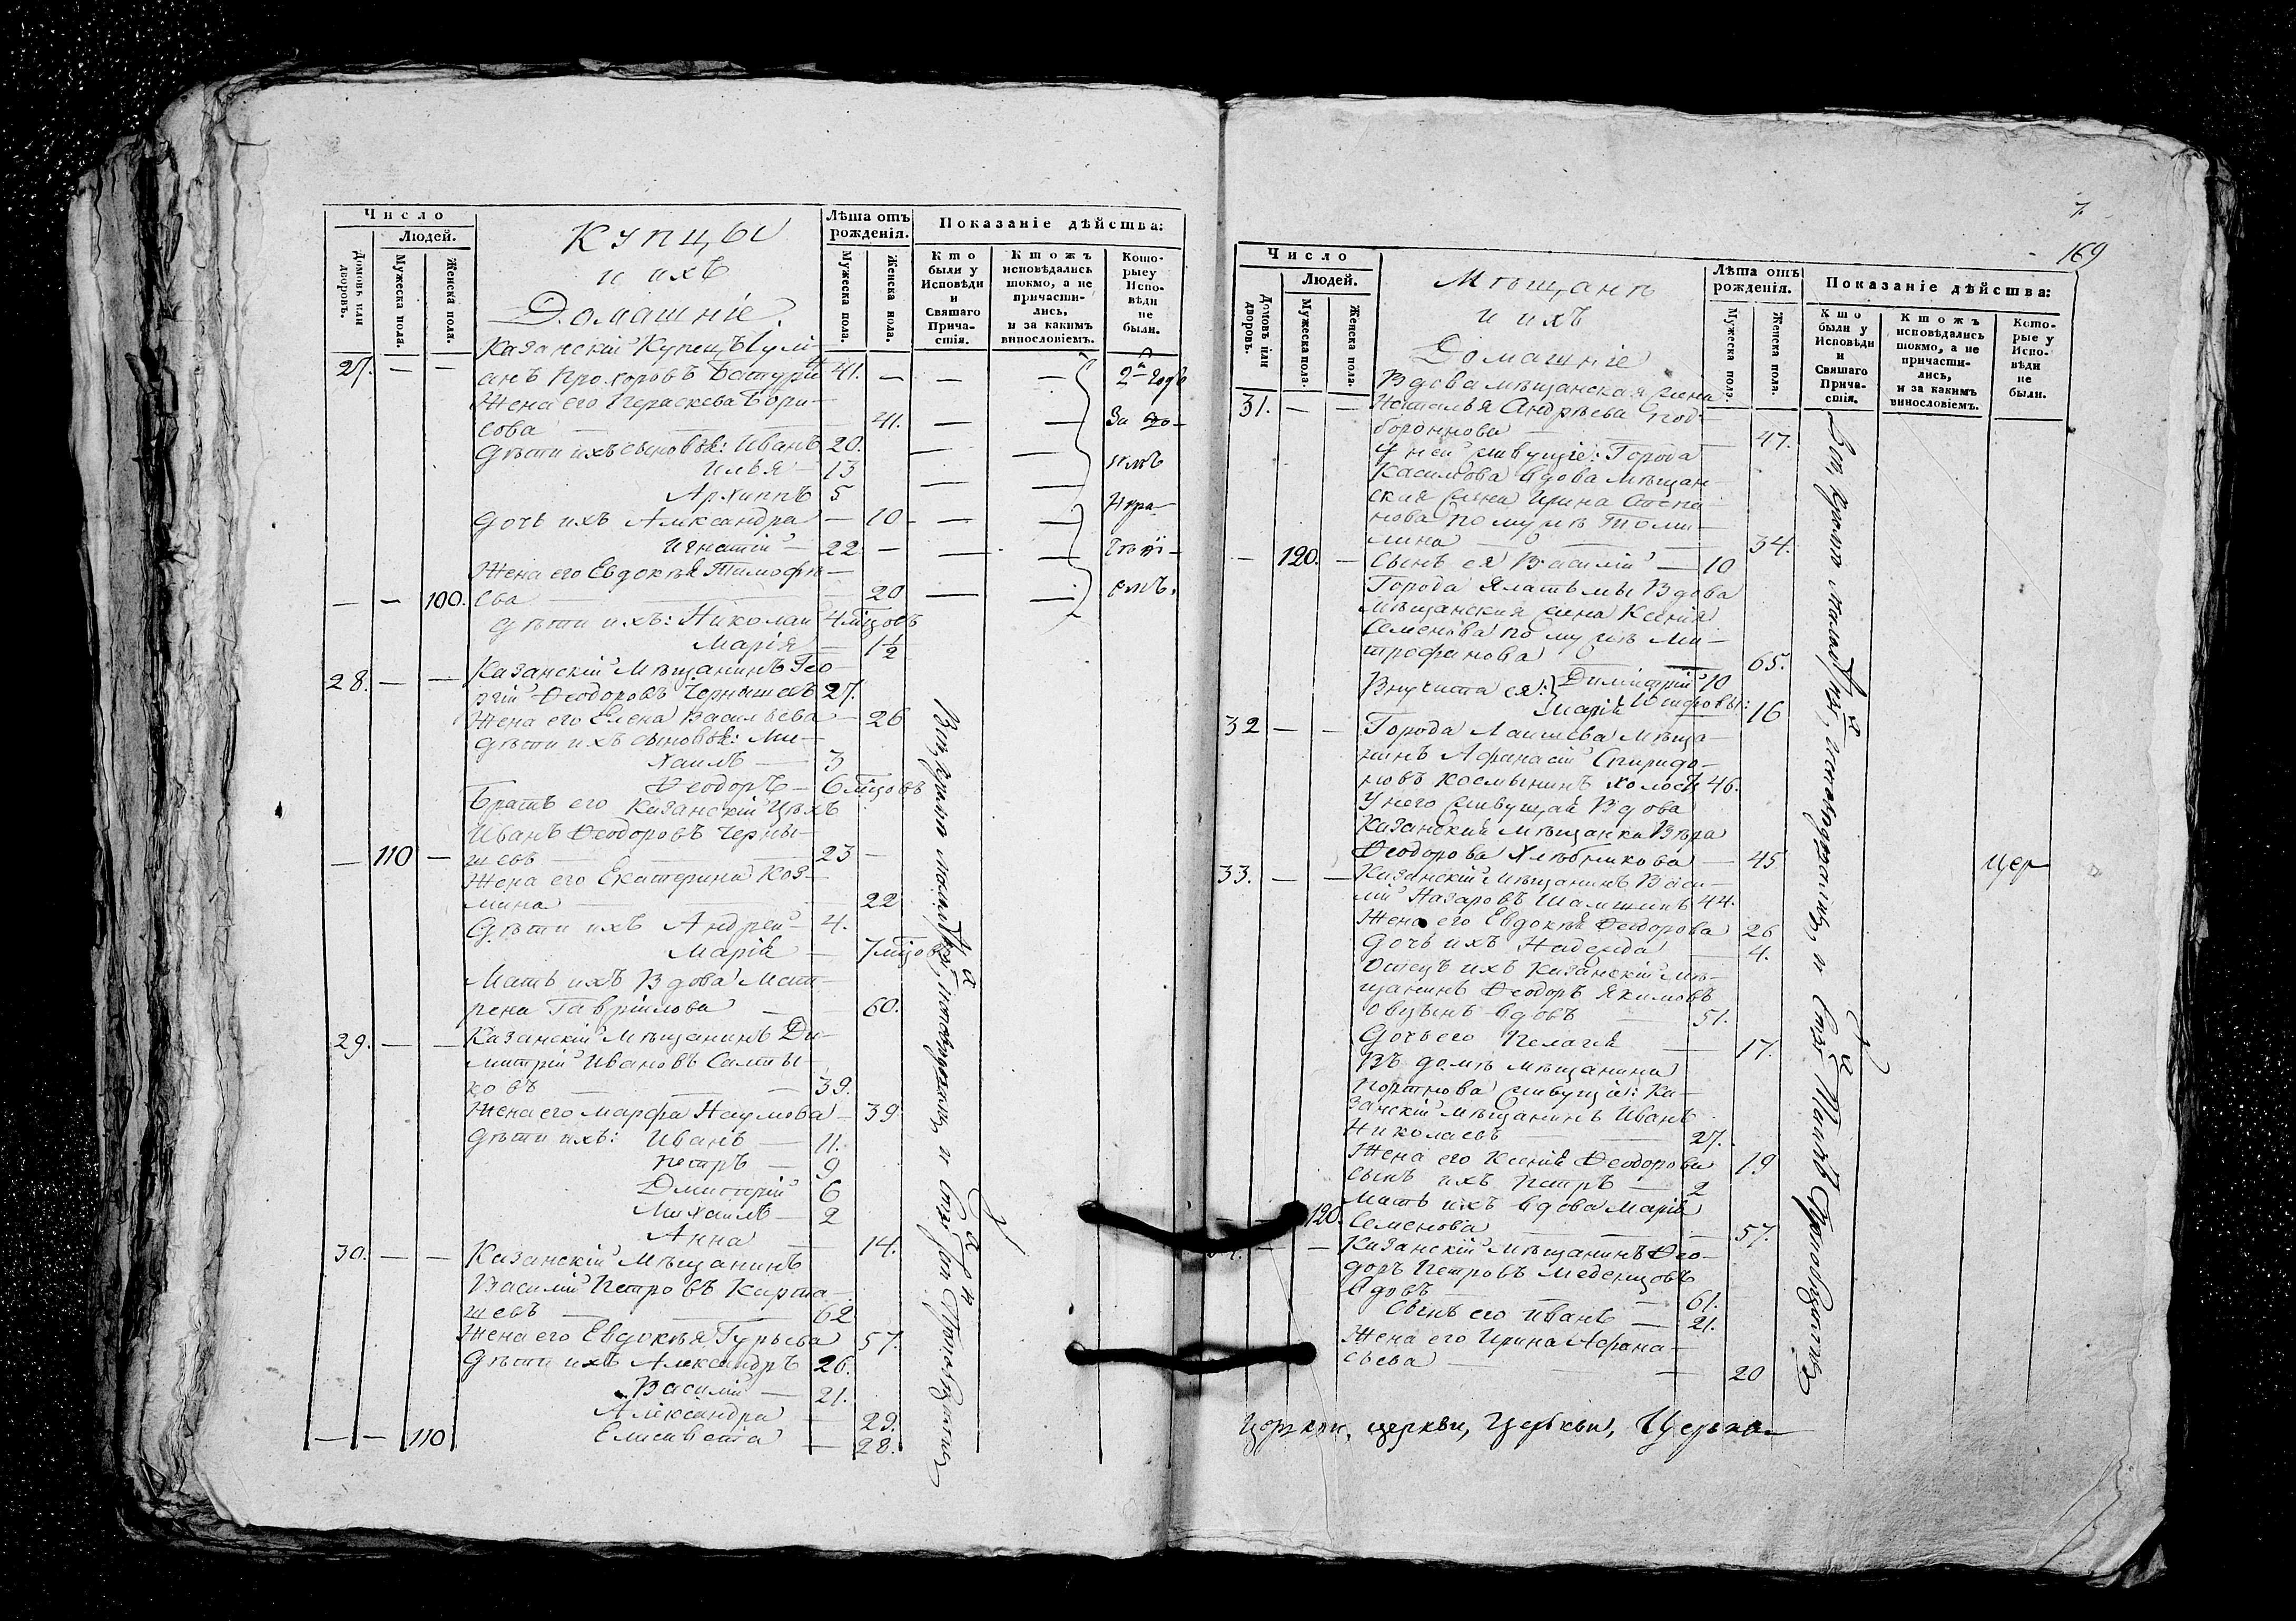 Число
Людей.
Домовъ или дворовъ.
Мужеска пола.
Женска пола.
Купцы
и ихъ
Домашніе.
Лѣта отъ рожденія.
Мужеска пола.
Женска пола.
Показаніе дѣйства:
Кто были у Исповѣди и Святаго Причастія.
Ктожъ исповѣдались токмо, а не причастились, и за какимъ винословіемъ.
Которые у Исповѣди не были.
Казанскій Купецъ Іулі-
27. — — анъ Прохоровъ Батуринъ 41. — — — 2 годъ
Жена его Параскева Бори-
сова — 41. — — За
Дѣти ихъ сыновья: Иванъ 20. — —
Илья — 13 — —
Архиппъ 5 — —
Дочь ихъ Александра — 10 — —
Игнатій — 22 — — —
Жена его Евдокія Тимофѣ-
— — 100. ева — 20 — —
дѣти ихъ: Николай 4 мцовъ
Марія — 1½
Казанскій Мѣщанинъ Гео-
28. — — ргій Ѳеодоровъ Чернышевъ 27.
Жена его Елена Васильева — 26
дѣти ихъ сыновья: Ми-
хаилъ — 3
Ѳеодоръ — 6 мцовъ
Братъ его Казанскій Цехъ
Иванъ Ѳеодоровъ Черны-
— 110 — шевъ — 23 —
Жена его Екатерина Коз-
мина — 22
Дѣти ихъ Андрей — 4.
Марія — 7 мцовъ
Мать ихъ Вдова Мат-
рена Гавріилова — 60.
29. — — Казанскій Мѣщанинъ Ди-
митрій Ивановъ Салты-
ковъ — 39.
Жена его Марфа Наумова — 39
Дѣти ихъ: Иванъ — 11.
Петръ — 9
Дмитрій 6
Михаилъ — 2
Анна — 14.
30. — — Казанскій Мѣщанинъ
Василій Петровъ Карта-
шевъ — 62
Жена его Евдокія Гурьева 57.
Дѣти ихъ Александръ 26.
Василій — 21.
Александра — 29.
— — 110 Елисавета — 28.
7.
169
Число
Людей.
Домовъ или дворовъ.
Мужеска пола.
Женска пола.
Мѣщанъ
и ихъ
Домашніе
Лѣта отъ рожденія.
Мужеска пола.
Женска пола.
Показаніе дѣйства:
Кто были у Исповѣди и Святаго Причастія.
Ктожъ исповѣдались токмо, а не причастились, и за какимъ винословіемъ.
Которые у Исповѣди не были.
Вдова мѣщанская жена
31. — — Наталья Андрѣева
— 47.
У ней живущіе: Города
Касимова вдова мѣщан-
ская жена Ирина Степа-
нова по мужѣ Томи-
лина — 34.
— 120. — Сынъ ея Василій — 10
Города Елатьмы Вдова
Мѣщанская жена Ксенія
Семенова по мужѣ Ми-
трофанова — 65.
Внучата ея: Димитрій 10
Марія — 16
32 — — Города Лаишева Мѣща-
нинъ Афанасій Спиридо-
новъ Космынинъ холостъ 46.
У него живущая Вдова
Казанская мѣщанка Вѣра
Ѳеодорова Хлѣбникова — 45. цер
33. — — Казанскій Мѣщанинъ Васи-
лій Назаровъ Шамшинъ 44.
Жена его Евдокія Ѳеодорова 26
Дочь ихъ Надежда — 4.
Отецъ ихъ Казанскій Мѣ-
щанинъ Ѳеодоръ Якимовъ
вдовъ — 51.
Дочь его Пелагія — 17.
Въ домѣ мѣщанина
Портнова живущіе: Ка-
занскій Мѣщанинъ Иванъ
Николаевъ — 27.
Жена его Ксенія Ѳеодорова 19
Сынъ ихъ Петръ — 2
Мать ихъ вдова Марія
120. Семенова — 57.
— — Казанскій Мѣщанинъ Ѳео-
доръ Петровъ Меденцовъ
вдовъ — 61.
Сынъ его Иванъ — 21.
Жена его Ирина Афана-
сьева — 20
церкви, церкви, Церкви, Церкв